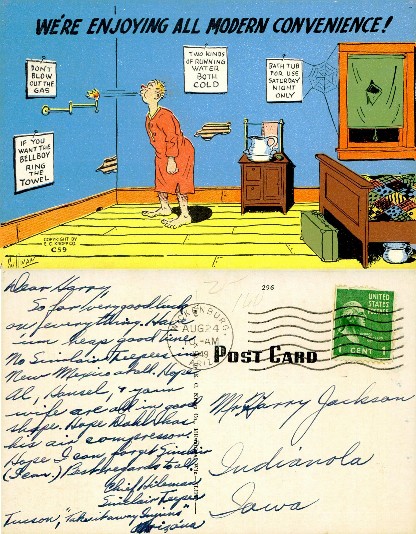 WE'RE ENJOYING ALL MODERN CONVENIENCE!
DON'T
BLOW OUT THE
GAS
TWO KINDS
OF RUNNING
WATER
BOTH
COLD
BATH TUB
FOR USE
SATURDAY
NIGHT
ONLY
IF YOU
WANT THE
BELLBOY
RING
THE
TOWEL
COPYRIGHT BY
E. C. KROPP CO.
C59
Dear Harry
So far very good luck
on everything.
keep good time
No Sinclair Jeepers in
New Mexico at all. Hope
Al, Hansel, & your
wife are all in good
shape. Hope Dahl has
his air compressor
Hope I can forget Sinclair
Best regards to all
Chief Hileman
Sinclair
Tucson, "Take it away Injuns"
Arizona
296
AUG 24
AM
1949
POST CARD
UNITED
STATES
POSTAGE
1 CENT 1
Mr. Harry Jackson
Indianola
Iowa